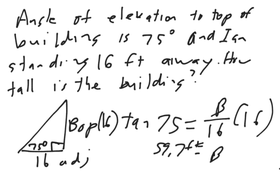 Angle of elevation to top of
building is 75° and I am
standing 16 ft away. How
tall is the building?
B opp (16) tan 75 = B/16 (16)
75°
59.7 ft = B
16 adj